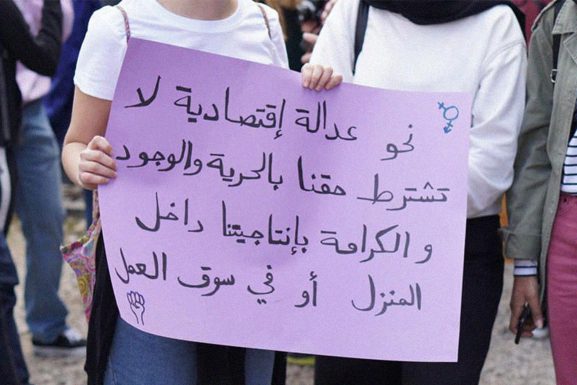 نحو عدالة إقتصادية لا
تشترط حقنا بالحرية والوجود
و الكرامة بإنتاجيتنا داخل
المنزل أو في سوق العمل